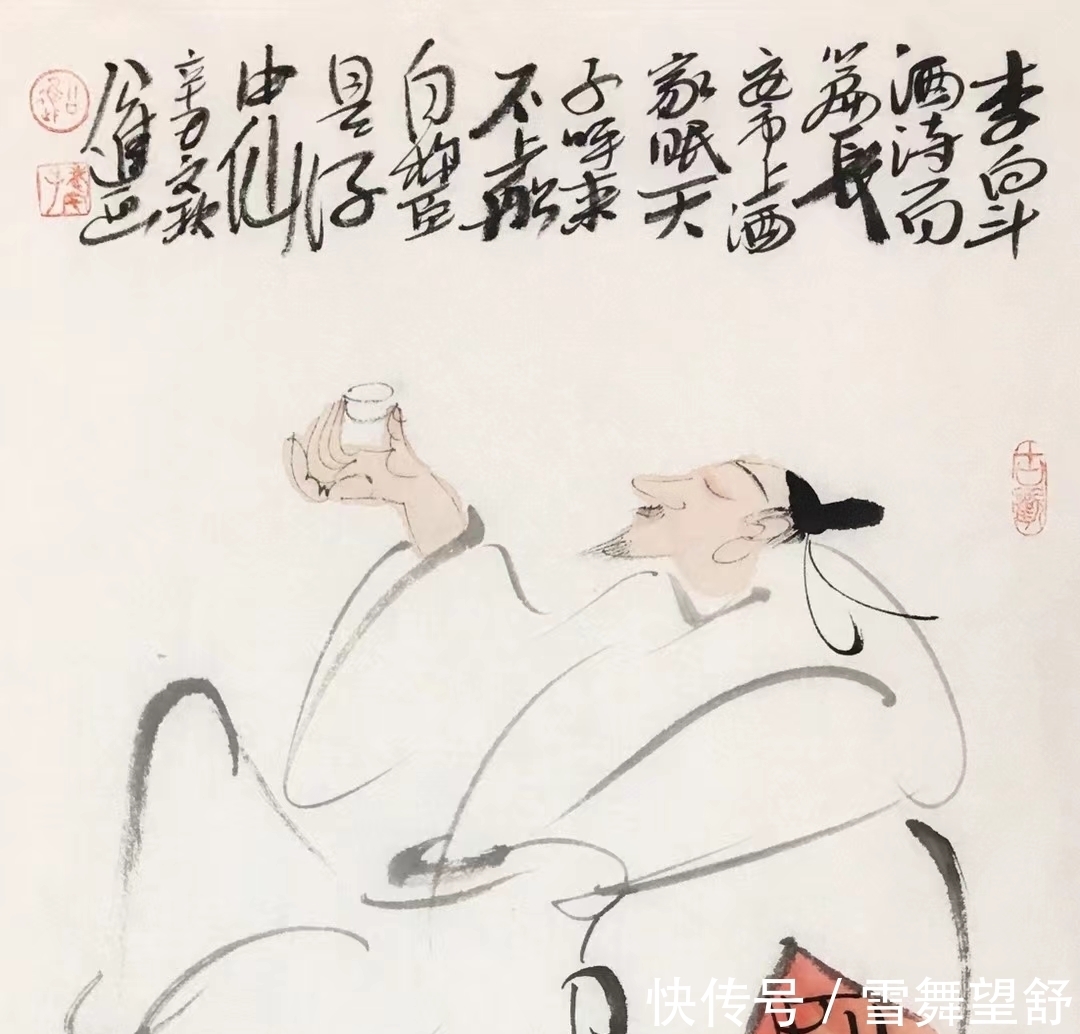 李白斗
酒诗百
篇长
安市上酒
家眠天
子呼来
不上船
自称臣
是
中仙
快传号 / 雪舞望舒